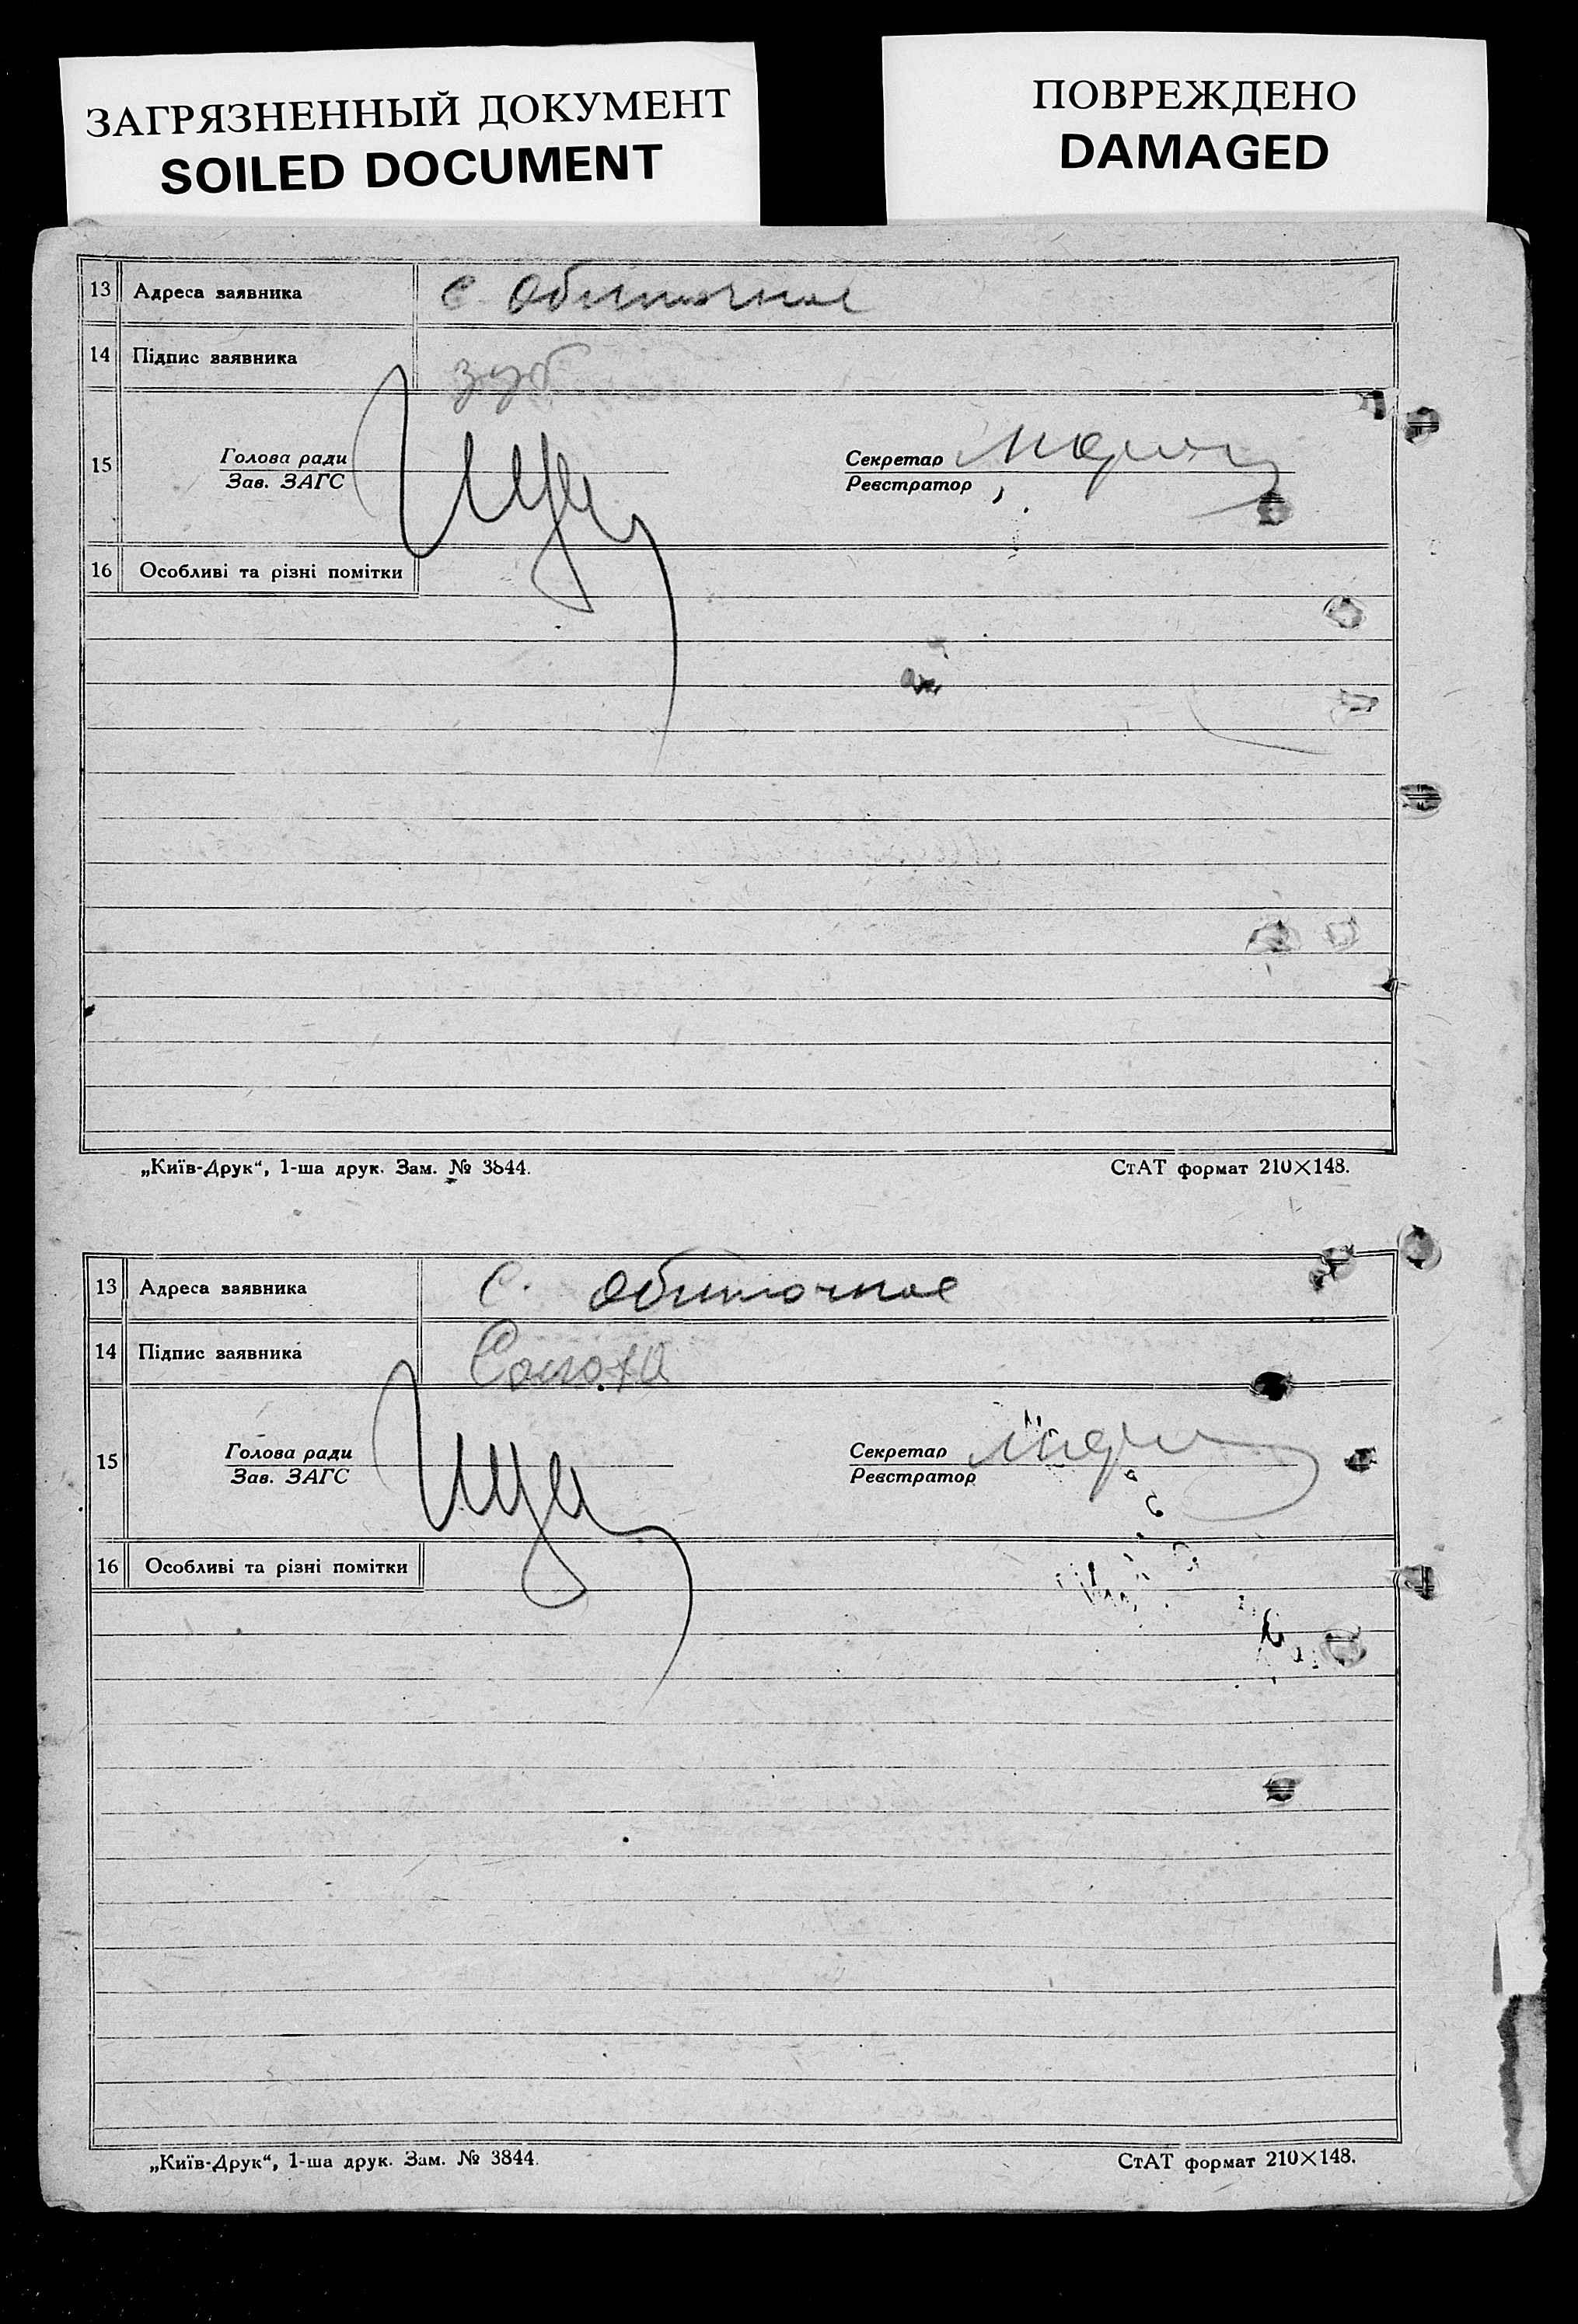 ЗАГРЯЗНЕННЫЙ ДОКУМЕНТ
SOILED DOCUMENT
ПОВРЕЖДЕНО
DAMAGED
13 Адреса заявника с Обиточное
14 Підпис заявника зуб
15 Голова ради Секретар
Зав. ЗАГС Реєстратор
16 Особливі та різні помітки
„Київ-Друк“, 1-ша друк. Зам. № 3844. СтАТ формат 210×148.
13 Адреса заявника с. Обиточное
14 Підпис заявника Солоха
15 Голова ради Секретар
Зав. ЗАГС Реєстратор
16 Особливі та різні помітки
„Київ-Друк“, 1-ша друк. Зам. № 3844. СтАТ формат 210×148.